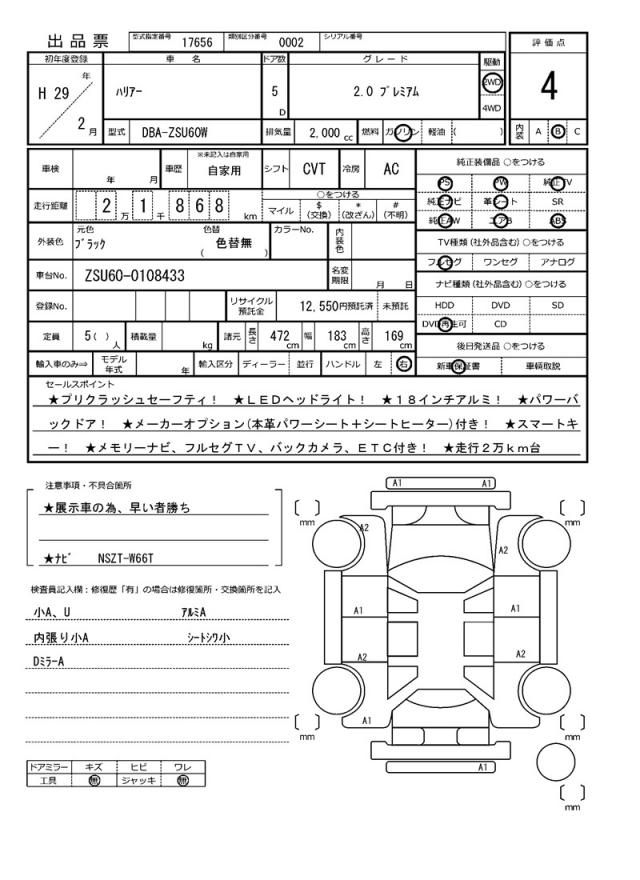 出品票 型式指定番号 17656 類別区分番号 0002 シリアル番号
評価点
4
内装 A B C
初年度登録 車名 ドア数 グレード 駆動
H 29 年 2 月
ハリアー 5 D 2.0 プレミアム 2WD 4WD
型式 DBA-ZSU60W 排気量 2,000 cc 燃料 ガソリン 軽油 ( )
車検 年 月 車歴 ※未記入は自家用 自家用 シフト CVT 冷房 AC
純正装備品 ○をつける
PS PW 純正TV
純正ナビ 革シート SR
純正AW エアB ABS
走行距離 2 万 1 千 8 6 8 km
○をつける
マイル $(交換) *(改ざん) #(不明)
TV種類(社外品含む)○をつける
フルセグ ワンセグ アナログ
外装色 元色 ブラック 色替 ( 色替無 ) カラーNo. 内装色
車台No. ZSU60-0108433 名変期限 月 日
ナビ種類(社外品含む)○をつける
HDD DVD SD
DVD再生可 CD
登録No. リサイクル預託金 12,550円預託済 未預託
定員 5( )人 積載量 kg 諸元 長さ 472 cm 幅 183 cm 高さ 169 cm
後日発送品 ○をつける
新車保証書 車輌取説
輸入車のみ⇒ モデル年式 年 輸入区分 ディーラー 並行 ハンドル 左 右
セールスポイント
★プリクラッシュセーフティ! ★LEDヘッドライト! ★18インチアルミ! ★パワーバ
ックドア! ★メーカーオプション(本革パワーシート+シートヒーター)付き! ★スマートキ
ー! ★メモリーナビ、フルセグTV、バックカメラ、ETC付き! ★走行2万km台
注意事項・不具合箇所
★展示車の為、早い者勝ち
★ナビ NSZT-W66T
検査員記入欄:修復歴「有」の場合は修復箇所・交換箇所を記入
小A、U アルミA
内張り小A シートシワ小
DミラーA
ドアミラー キズ ヒビ ワレ
工具 無 ジャッキ 無
A1 A1
[ ] mm [ ] mm
A2 A2
A1 A1
A2 A2
A1
[ ] mm [ ] mm
A1
[ ] mm